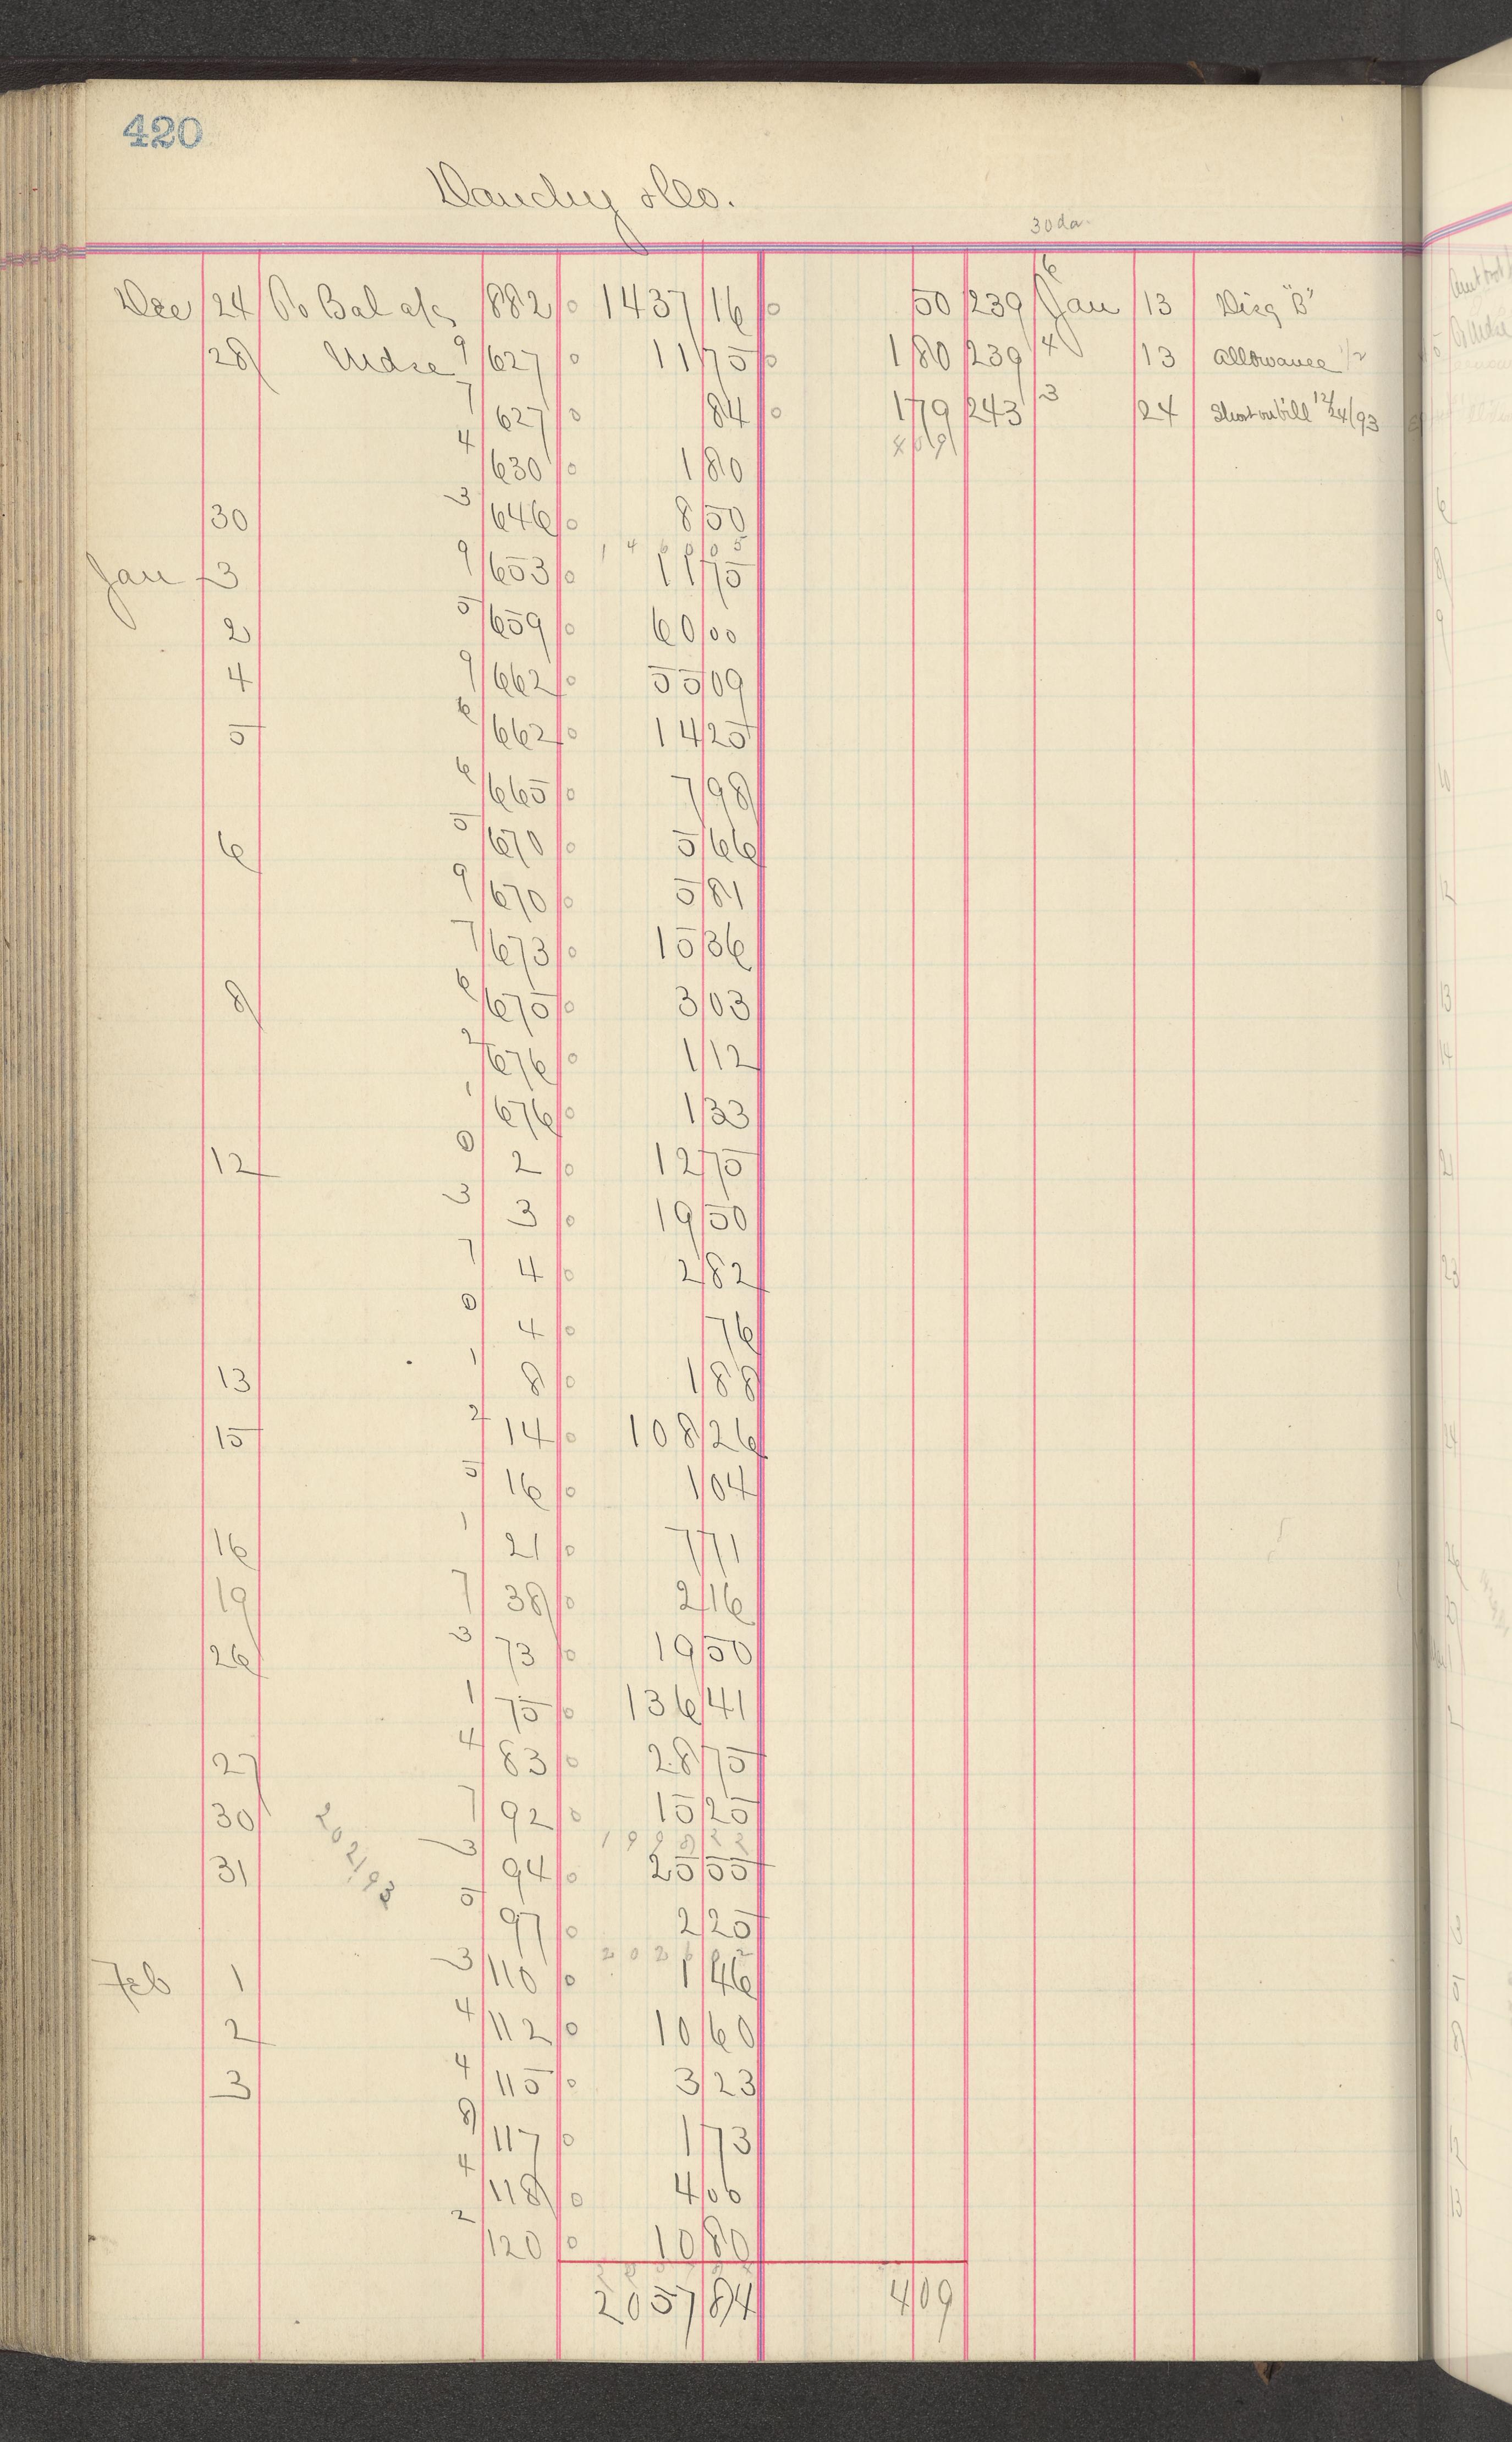 420
& Co.
30 da.
Dec 24 To Bal a/c 882 0 1437 16 0 50 239 6 Jan 13 Disg "B"
28 Mdse 9 627 0 11 75 0 1 80 239 4 13 Allowance 1/2
7 627 0 84 0 1 79 243 3 24 Short on bill 12/24/93
4 630 0 1 80 4 09
30 3 646 0 8 50
Jan 3 9 653 0 11 75
2 5 659 0 60 00
4 9 662 0 55 09
5 6 662 0 14 25
6 665 0 7 98
6 5 670 0 5 66
9 670 0 5 81
7 673 0 15 36
8 6 675 0 3 03
2 676 0 1 12
1 676 0 1 33
12 0 2 0 12 75
3 3 0 19 50
7 4 0 2 82
0 4 0 76
13 1 8 0 1 88
15 2 14 0 108 26
5 16 0 1 04
16 1 21 0 7 71
19 7 38 0 2 16
26 3 73 0 19 50
1 75 0 136 41
27 4 83 0 28 75
30 7 92 0 15 25
31 3 94 0 25 55
5 97 0 2 25
Feb 1 3 110 0 1 46
2 4 112 0 10 60
3 4 115 0 3 23
8 117 0 1 73
4 118 0 4 00
2 120 0 10 80
2057 84 4 09